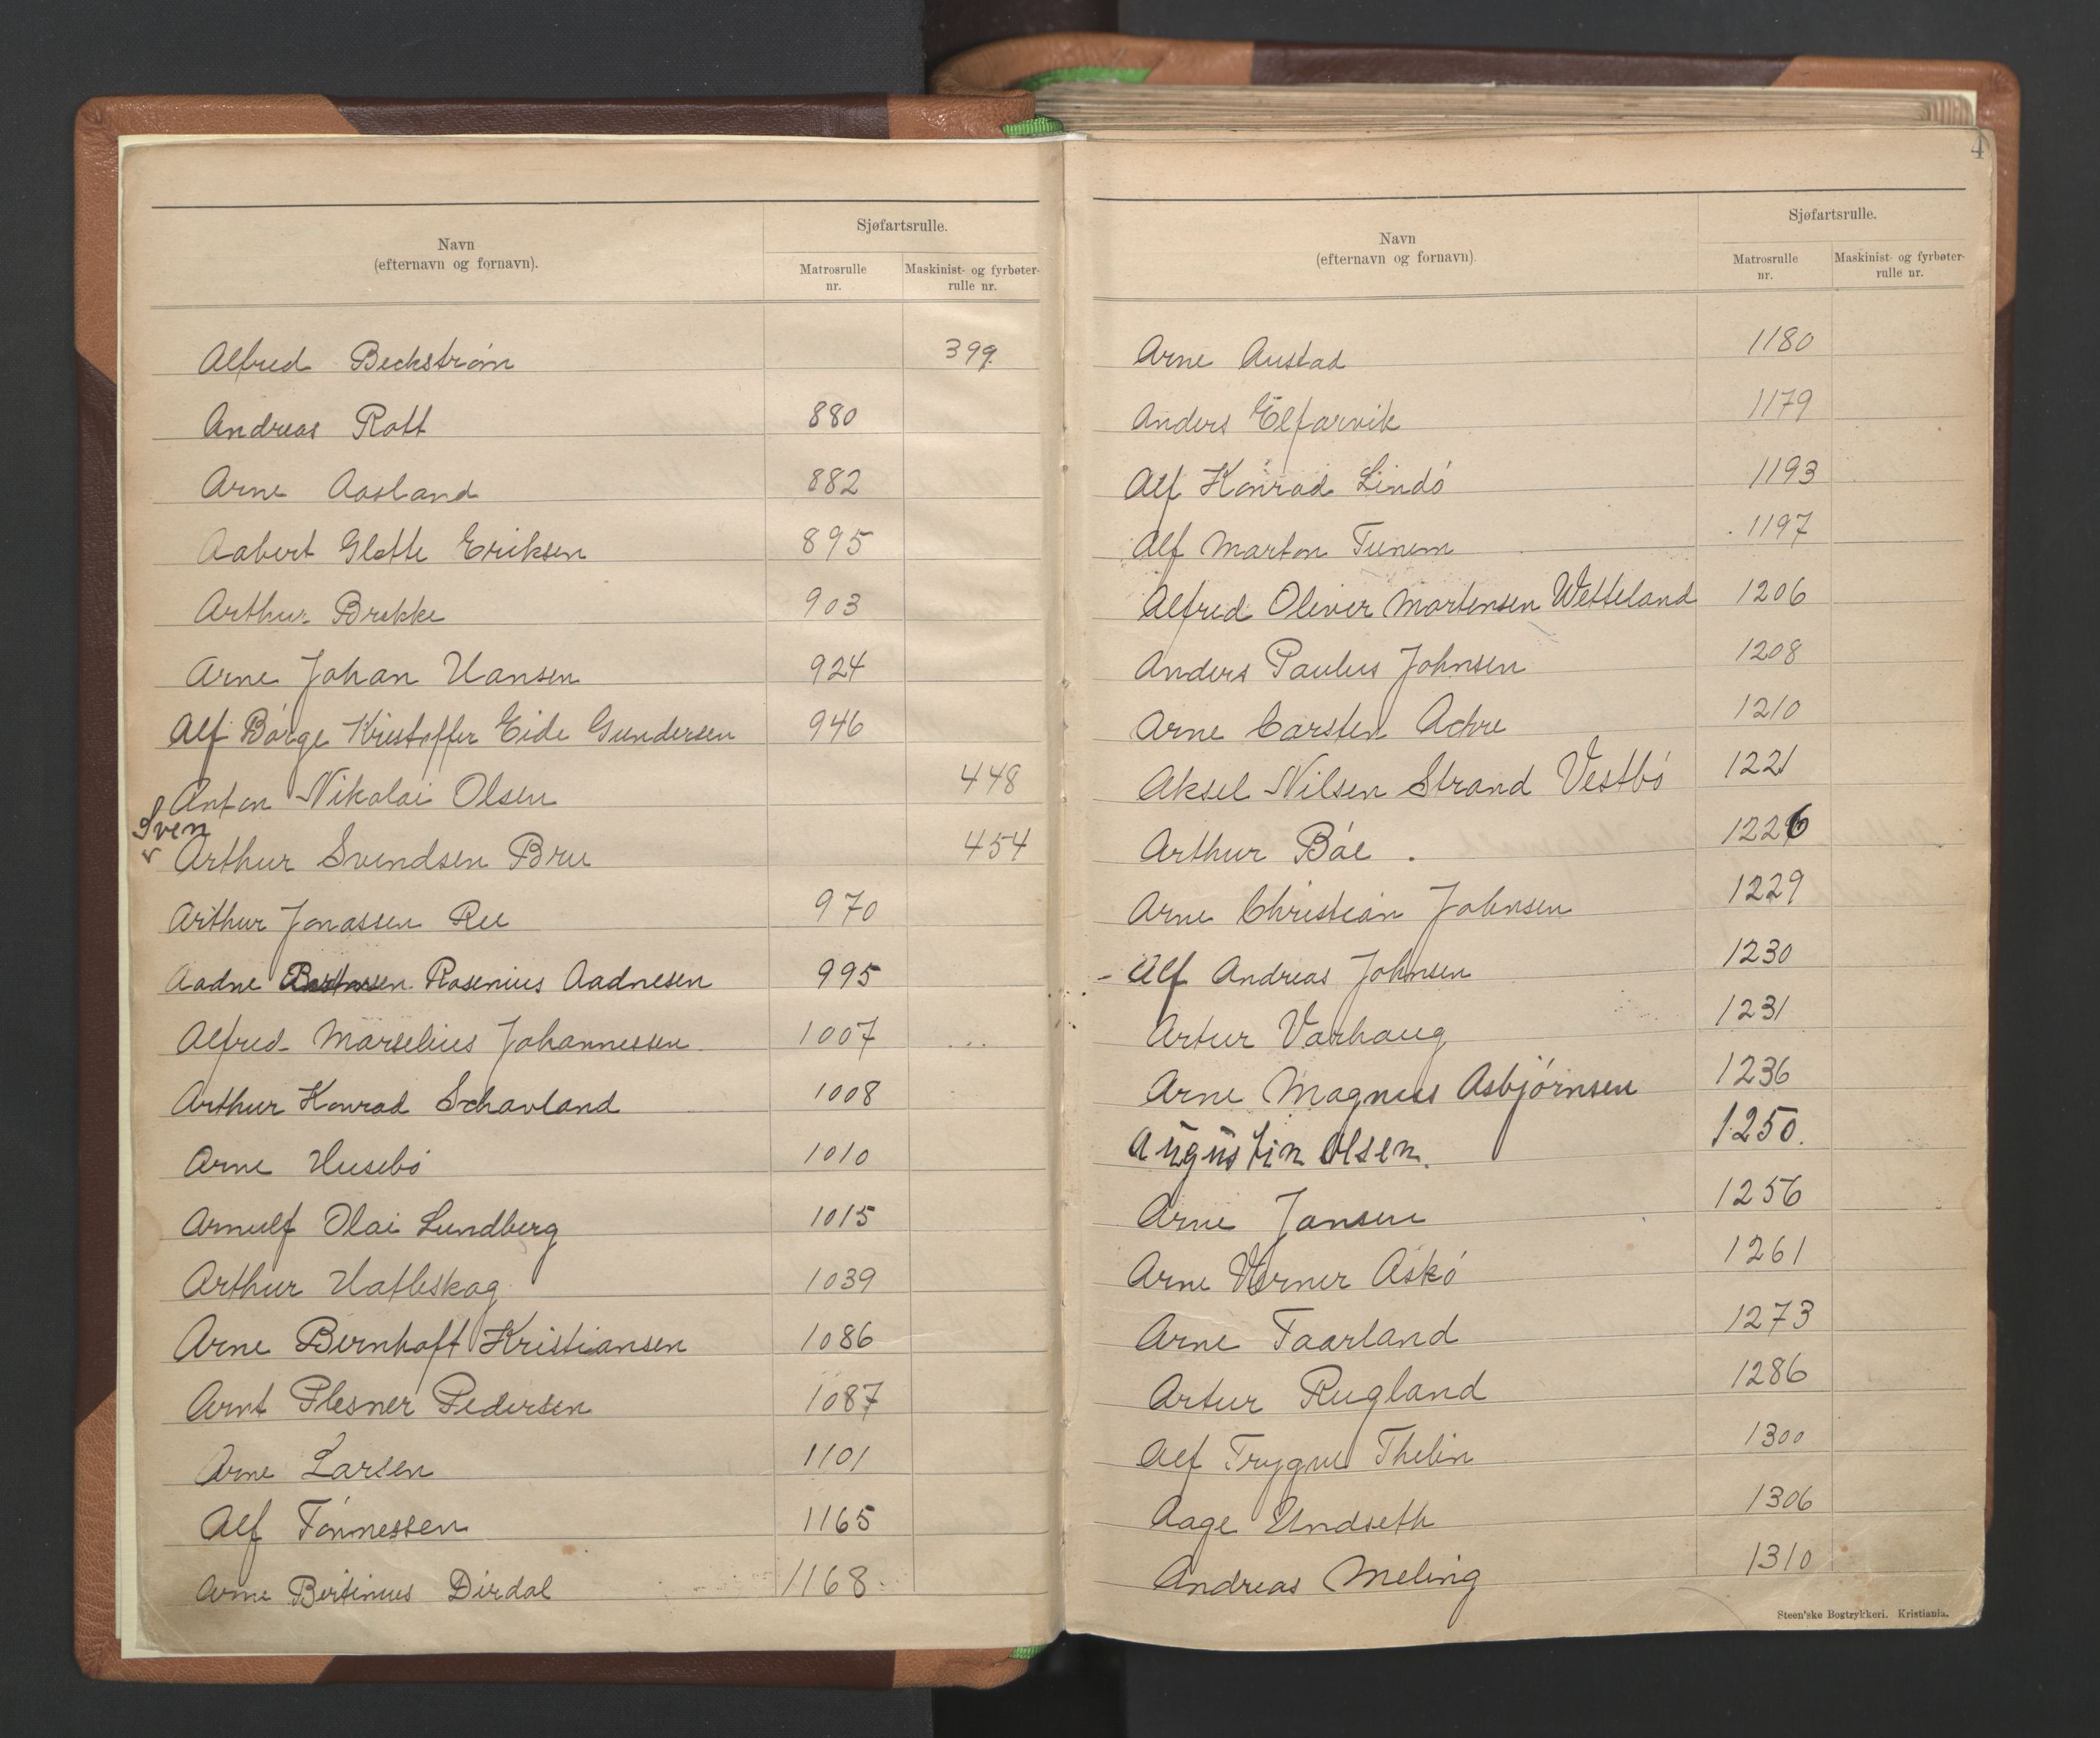 Navn
(efternavn og fornavn).
Sjøfartsrulle.
Matrosrulle nr.
Maskinist- og fyrbøter-rulle nr.
Alfred Beckstrøm 399.
Andreas Rott 880
Arne Aasland 882
Aabert Glette Eriksen 895
Arthur Brekke 903
Arne Johan Hansen 924
Alf Børge Kristoffer Eide Gundersen 946
Anton Nikolai Olsen 448
Sven
Arthur Svendsen Bru 454
Arthur Jonassen Ree 970
Aadne Rosenius Aadnesen 995
Alfred Marselius Johannessen 1007
Arthur Konrad Schavland 1008
Arne Husebø 1010
Arnulf Olai Lundberg 1015
Arthur Hatleskog 1039
Arne Bernhoft Kristiansen 1086
Arnt Plesner Pedersen 1087
Arne Larsen 1101
Alf Tønnessen 1165
Arne Bertinius Dirdal 1168
4
Navn
(efternavn og fornavn).
Sjøfartsrulle.
Matrosrulle nr.
Maskinist- og fyrbøter-rulle nr.
Arne Austad 1180
Anders Elfarvik 1179
Alf Konrad Lindø 1193
Alf Marton Tunem 1197
Alfred Oliver Martensen Wetteland 1206
Anders Paulus Johnsen 1208
Arne Carsten Achre 1210
Aksel Nilsen Strand Vestbø 1221
Arthur Bøe . 1226
Arne Christian Johnsen 1229
- Alf Andreas Johnsen 1230
Artur Varhaug 1231
Arne Magnus Asbjørnsen 1236
Augustin Olsen. 1250.
Arne Jansen 1256
Arne Verner Askø 1261
Arne Taarland 1273
Artur Rugland 1286
Alf Trygve Thelin 1300
Aage Undseth 1306
Andreas Meling 1310
Steen'ske Bogtrykkeri. Kristiania.